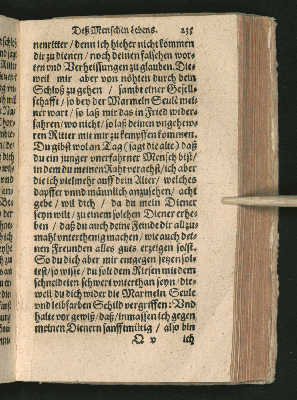 Deß Menschin Lebens. 235
nenritter / denn ich hieher nicht kommen
dir zu dienen / noch deinen falschen wor-
ten vnd Verheissungen zu glauben. Die-
weil mir aber von nöhten durch dein
Schloß zu gehen / sambt einer Gesell-
schafft / so bey der Marmeln Seul mei-
ner wart / so laß mir das in Fried wider-
fahren / wo nicht / so laß deinen vngehew-
ren Ritter mit mir kempffen kommen.
Du gibst wol an Tag (sagt die alte) daß
du ein junger vnerfahrner Mensch bist /
in dem du meinen Raht verachst / ich aber
die ich vielmehr auff dein Alter / welches
dapffer vnnd männlich anzusehen / acht
gebe / wil dich / da du mein Diener
seyn wilt / zu einem solchen Diener erhe-
ben / daß du auch deine Feinde dir allzu-
mahl vnterthenig machen / wie auch dei-
nen Freunden alles guts erzeigen solst.
So du dich aber mir entgegen setzen sol-
test / so wisse / du solt dem Riesen mit dem
schneidenten schwert vnterthan seyn / die-
weil du dich wider die Marmeln Seule
vnd leibfarben Schild vergriffen: Vnd
halte vor gewiß / daß / inmassen ich gegen
meinen Dienern sanfftmütig / also bin
Q v ich